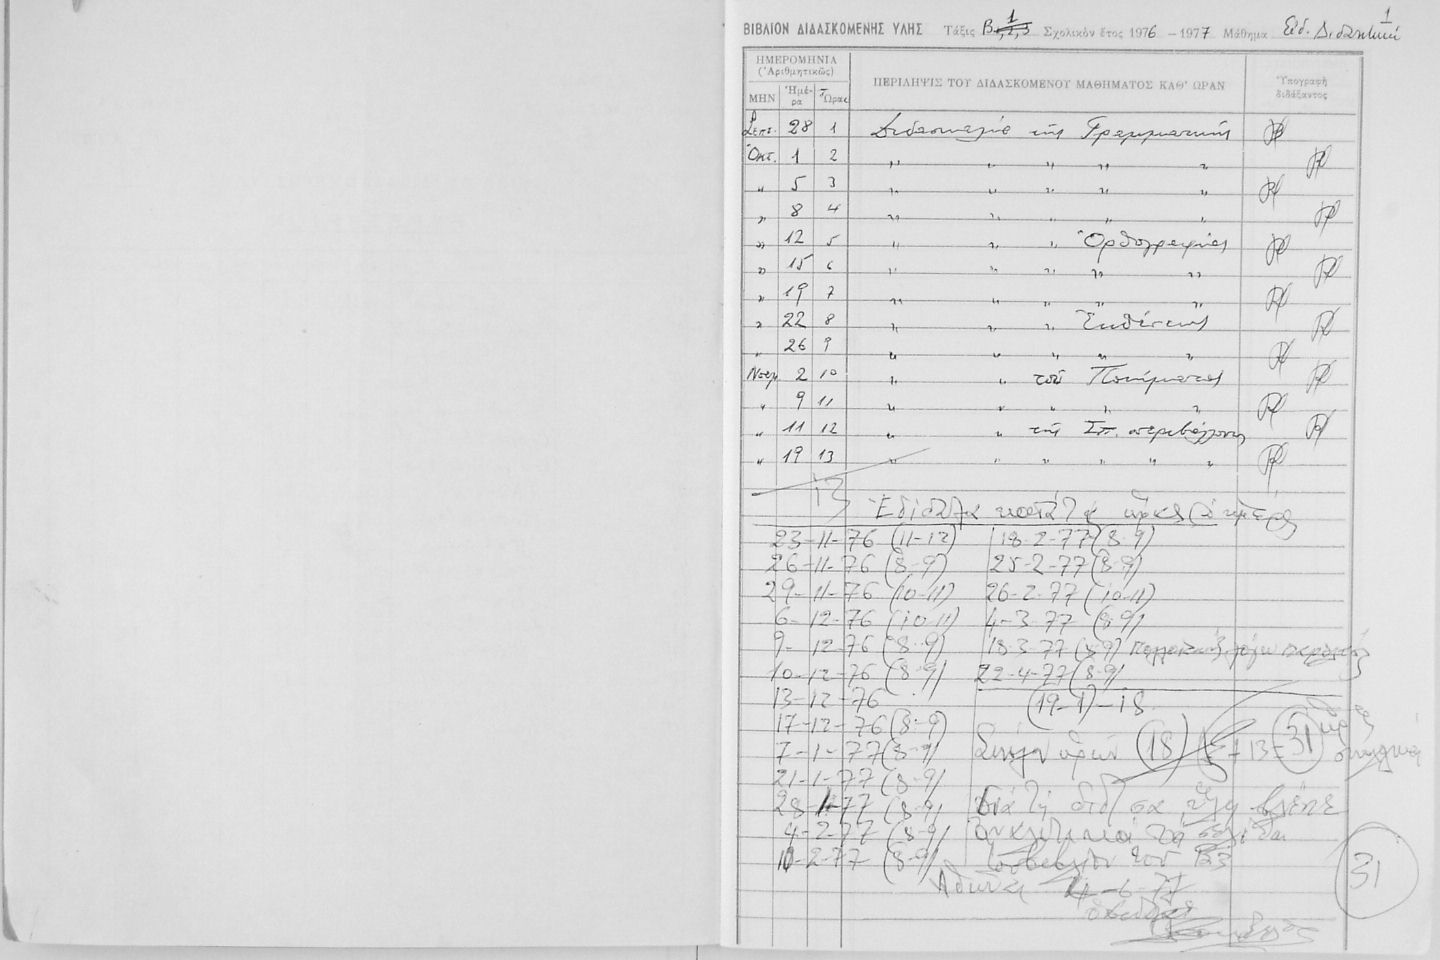 1
ΒΙΒΛΙΟΝ ΔΙΔΑΣΚΟΜΕΝΗΣ ΥΛΗΣ Τάξις Β 1 Σχολικὸν ἔτος 1976 - 1977 Μάθημα Εἰδ. Διδακτική
ΗΜΕΡΟΜΗΝΙΑ (Ἀριθμητικῶς) ΠΕΡΙΛΗΨΙΣ ΤΟΥ ΔΙΔΑΣΚΟΜΕΝΟΥ ΜΑΘΗΜΑΤΟΣ ΚΑΘ' ΩΡΑΝ Ὑπογραφὴ διδάξαντος
ΜΗΝ Ἡμέρα Ὥρας
Σεπτ. 28 1 Διδασκαλία τῆς Γραμματικῆς
Ὀκτ. 1 2 " " " " "
" 5 3 " " " " "
" 8 4 " " " "
" 12 5 " " " Ὀρθογραφίας
" 15 6 " " " " "
" 19 7 " " " " "
" 22 8 " " " Ἐκθέσεως
" 26 9 " " " " "
Νοεμ 2 10 " " τοῦ Ποιήματος
" 9 11 " " " " "
" 11 12 " " τῆς Σπ. περιβάλλοντος
" 19 13 " " " " " "
13
Ἐδίδαξα κατὰ τὰς ὥρας
23-11-76 (11-12) 18-2-77 (8-9)
26-11-76 (8-9) 25-2-77 (8-9)
29-11-76 (10-11) 26-2-77 (10-11)
6-12-76 (10-11) 4-3-77 (8-9)
9-12-76 (8-9) 18-3-77 (8-9)
10-12-76 (8-9) 22-4-77 (8-9)
13-12-76 (19-1)-18
17-12-76 (8-9)
7-1-77 (8-9) ὡρῶν (18) + 13 = 31 ὧρες
21-1-77 (8-9)
28-1-77 (8-9) Διὰ τὴ ὕλη βλέπε
4-2-77 (8-9)
11-2-77 (8-9) τοῦ Β3
31
Ἀθῆναι 4-6-77